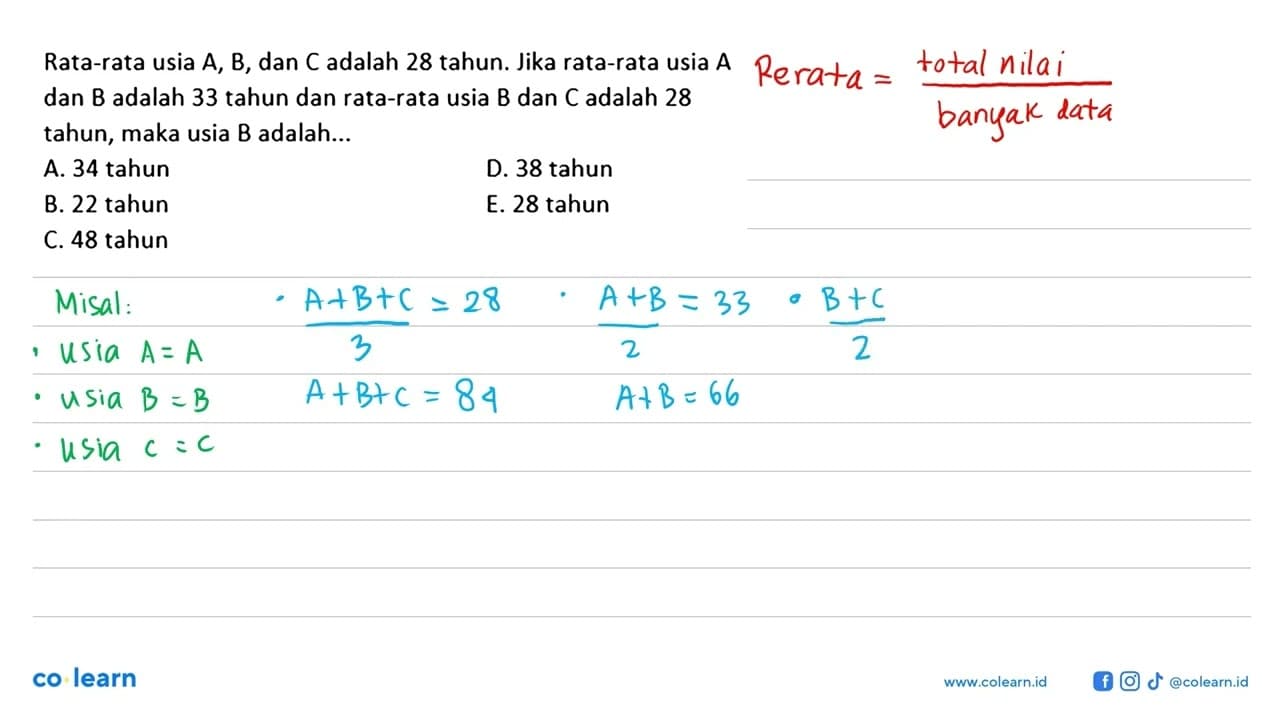 Rata-rata usia A, B, dan C adalah 28 tahun. Jika rata-rata usia A
dan B adalah 33 tahun dan rata-rata usia B dan C adalah 28
tahun, maka usia B adalah...
A. 34 tahun
B. 22 tahun
C. 48 tahun
D. 38 tahun
E. 28 tahun
Rerata = total nilai / banyak data
Misal:
• usia A = A
• usia B = B
• usia C = C
• A+B+C / 3 = 28
A+B+C = 84
• A+B / 2 = 33
A+B = 66
• B+C / 2
co·learn
www.colearn.id
@colearn.id